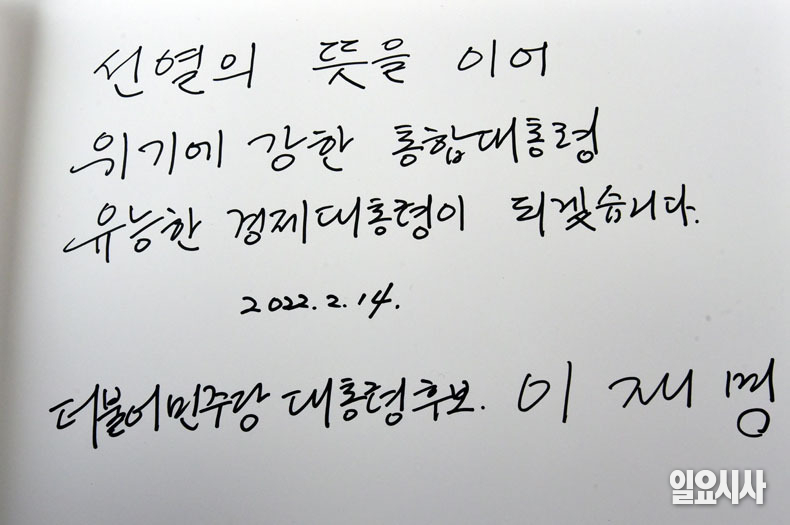 선열의 뜻을 이어
위기에 강한 통합대통령
유능한 경제대통령이 되겠습니다.
2022.2.14.
더불어민주당 대통령후보. 이재명
일요시사